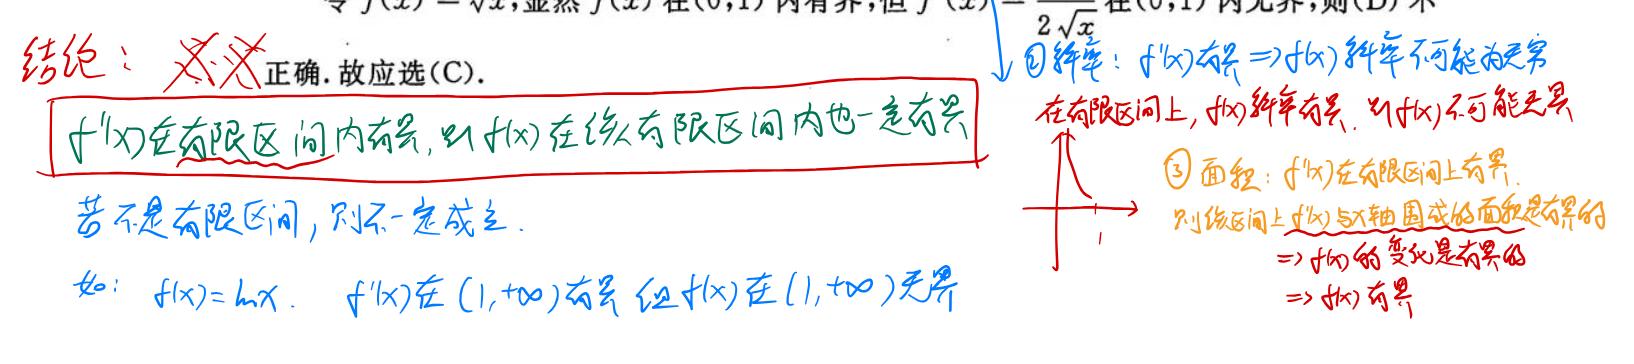 令 f(x) = √x, 显然 f(x) 在(0,1) 内有界, 但 f′(x) = 1/(2√x) 在(0,1) 内无界, 则(D) 不
正确. 故应选(C).
结论:
f'(x)在有限区间内有界, 则f(x)在该有限区间内也一定有界
若不是有限区间, 则不一定成立.
如: f(x)=lnx. f'(x)在(1,+∞)有界 但f(x)在(1,+∞)无界
②斜率: f'(x)有界 => f(x)斜率不可能为无穷
在有限区间上, f(x)斜率有界, 则f(x)不可能无界
1
③面积: f'(x)在有限区间上有界.
则该区间上f'(x)与x轴围成的面积是有界的
=> f(x)的变化是有界的
=> f(x)有界